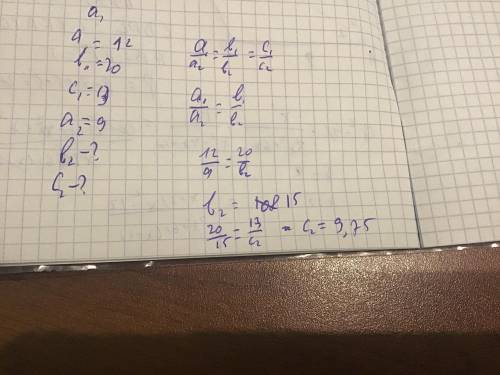 a₁
a = 12
b₁ = 20
c₁ = 13
a₂ = 9
b₂ - ?
c₂ - ?
a₁/a₂ = b₁/b₂ = c₁/c₂
a₁/a₂ = b₁/b₂
12/9 = 20/b₂
b₂ = 15
20/15 = 13/c₂ = c₂ = 9,75